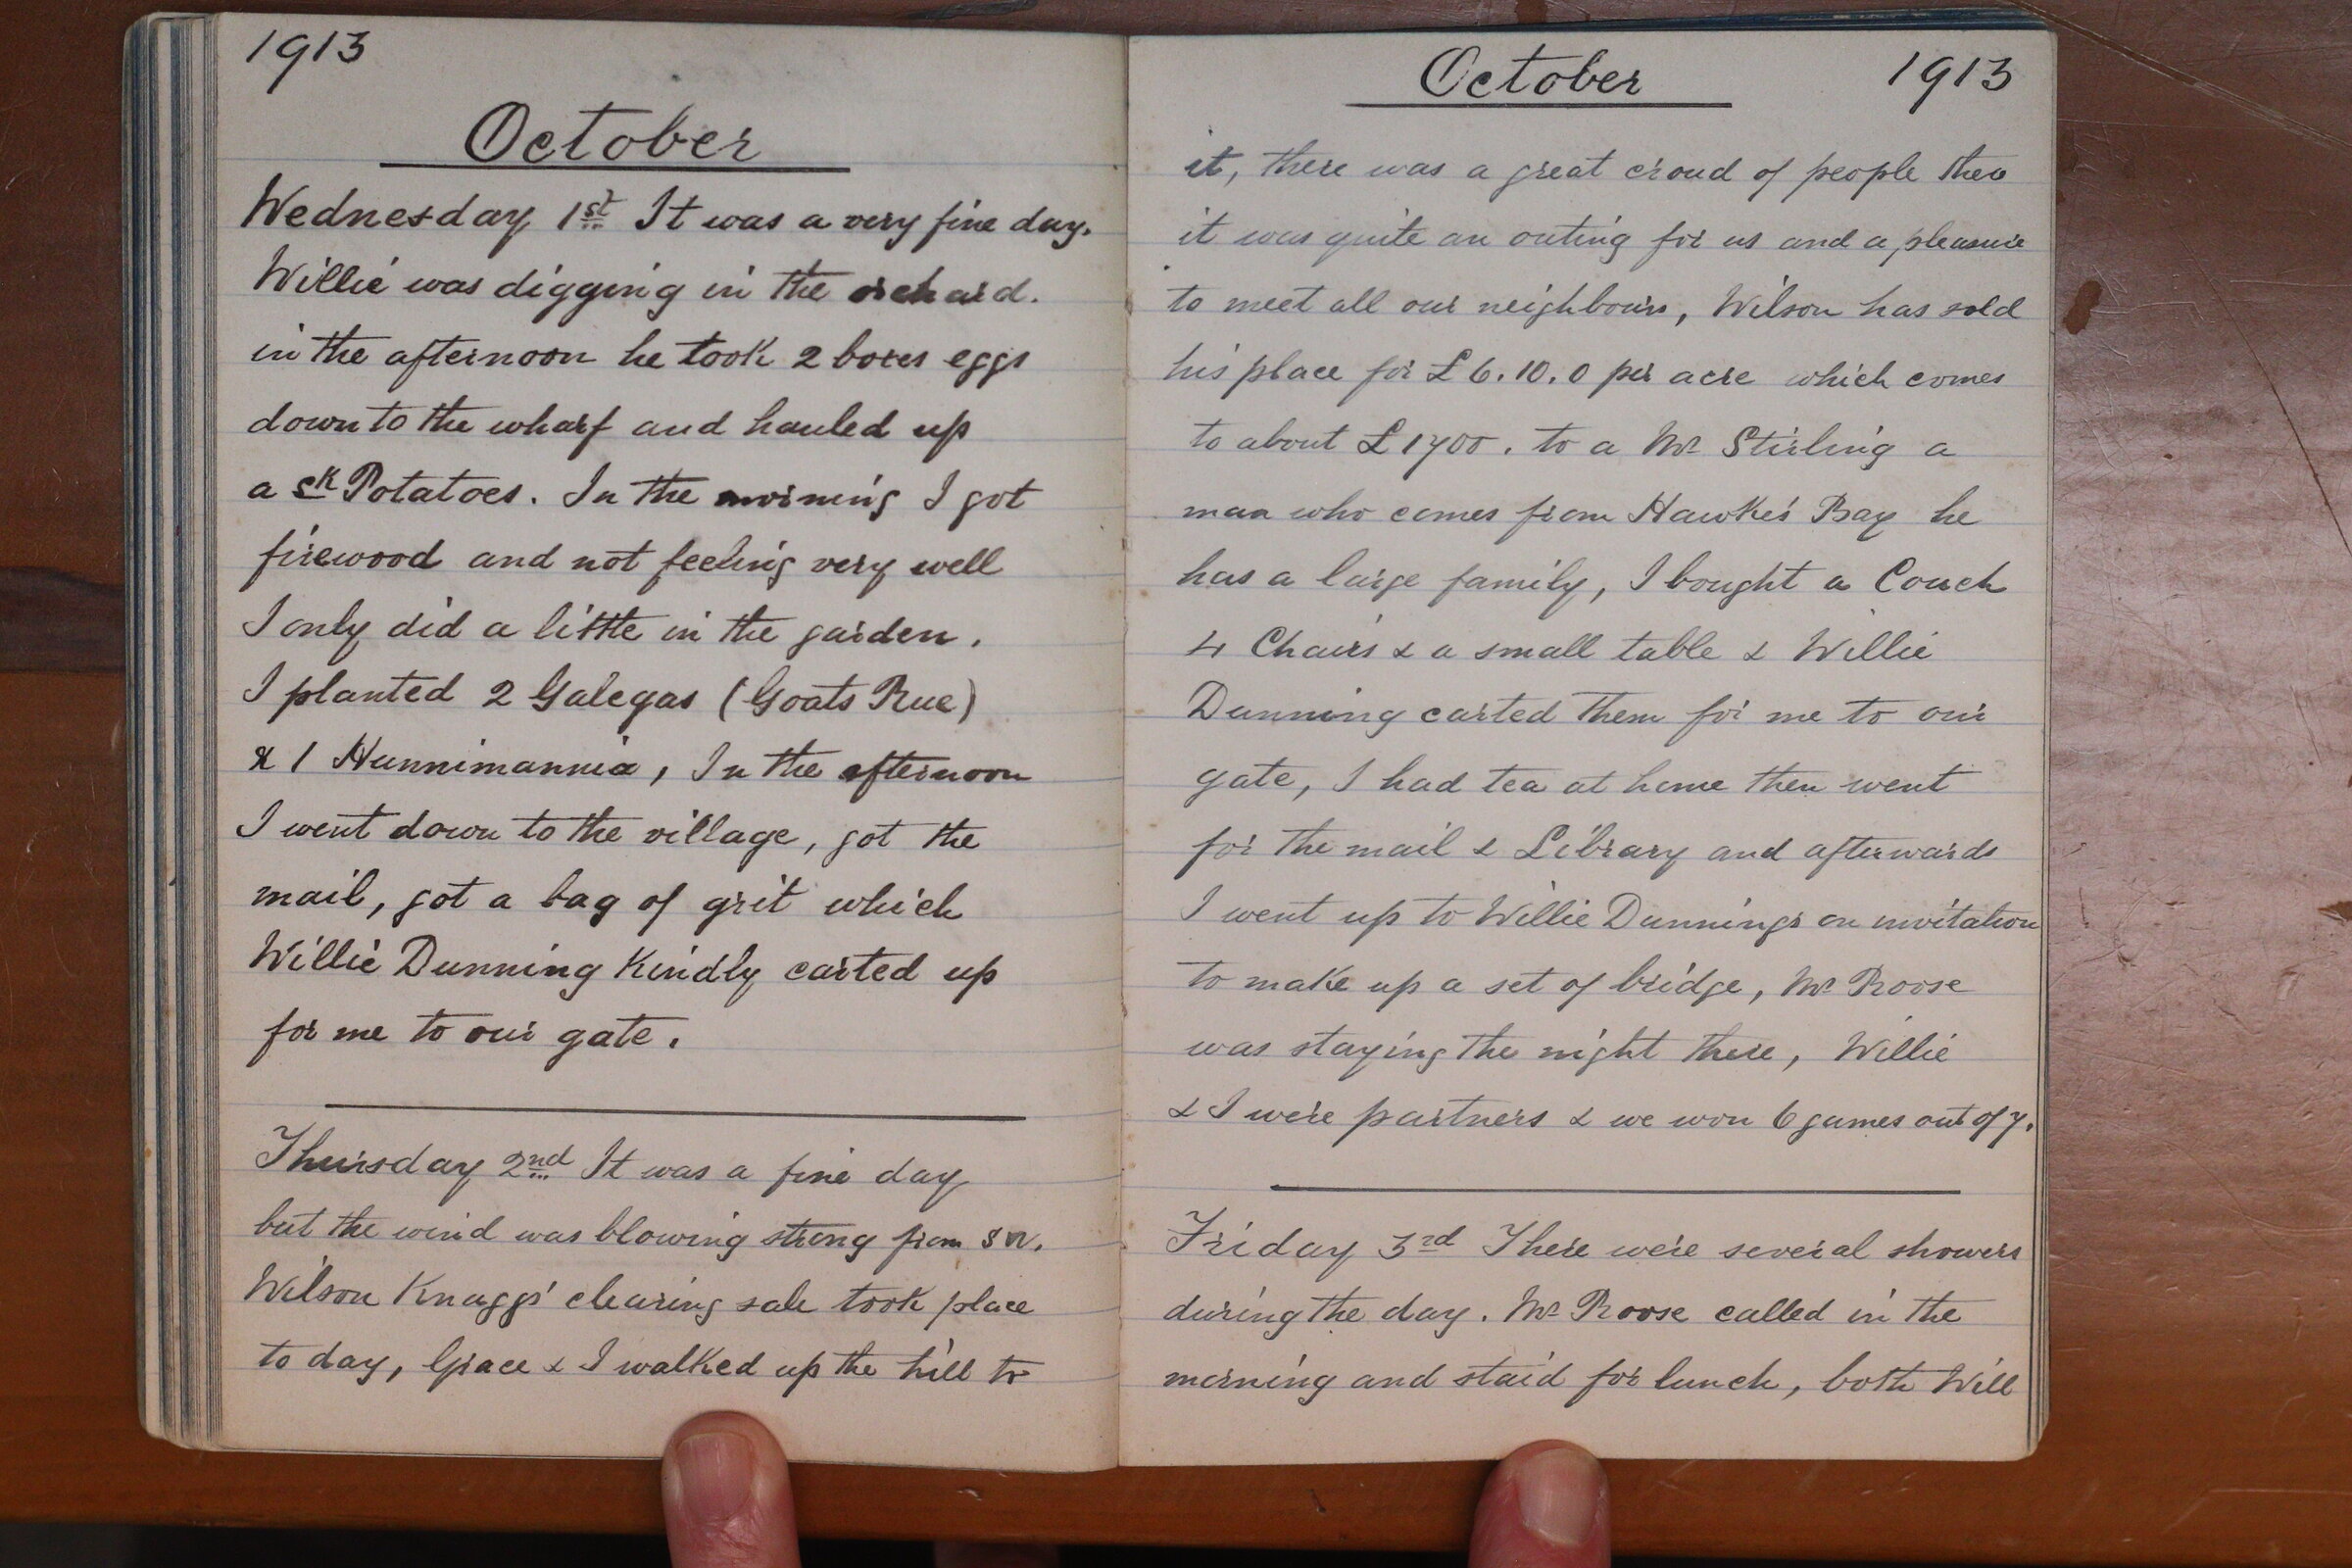 1913
October
Wednesday 1st It was a very fine day.
Willie was digging in the orchard.
in the afternoon he took 2 boxes eggs
down to the wharf and hauled up
a sk Potatoes. In the morning I got
firewood and not feeling very well
I only did a little in the garden.
I planted 2 Galegas (Goats Rue)
& 1 Hunnimannia, In the afternoon
I went down to the village, got the
mail, got a bag of grit which
Willie Dunning Kindly carted up
for me to our gate.
Thursday 2nd It was a fine day
but the wind was blowing strong from SW.
Wilson Knaggs' clearing sale took place
to day, Grace & I walked up the hill to
October 1913
it, there was a great croud of people there
it was quite an outing for us and a pleasure
to meet all our neighbours, Wilson has sold
his place for £6.10.0 per acre which comes
to about £1700. to a Mr Stirling a
man who comes from Hawke's Bay he
has a large family, I bought a Couch
4 Chairs & a small table & Willie
Dunning carted them for me to our
gate, I had tea at home then went
for the mail & Library and afterwards
I went up to Willie Dunnings on invitation
to make up a set of bridge, Mr Roose
was staying the night there, Willie
& I were partners & we won 6 games out of 7.
Friday 3rd There were several showers
during the day. Mr Roose called in the
morning and staid for lunch, both Will